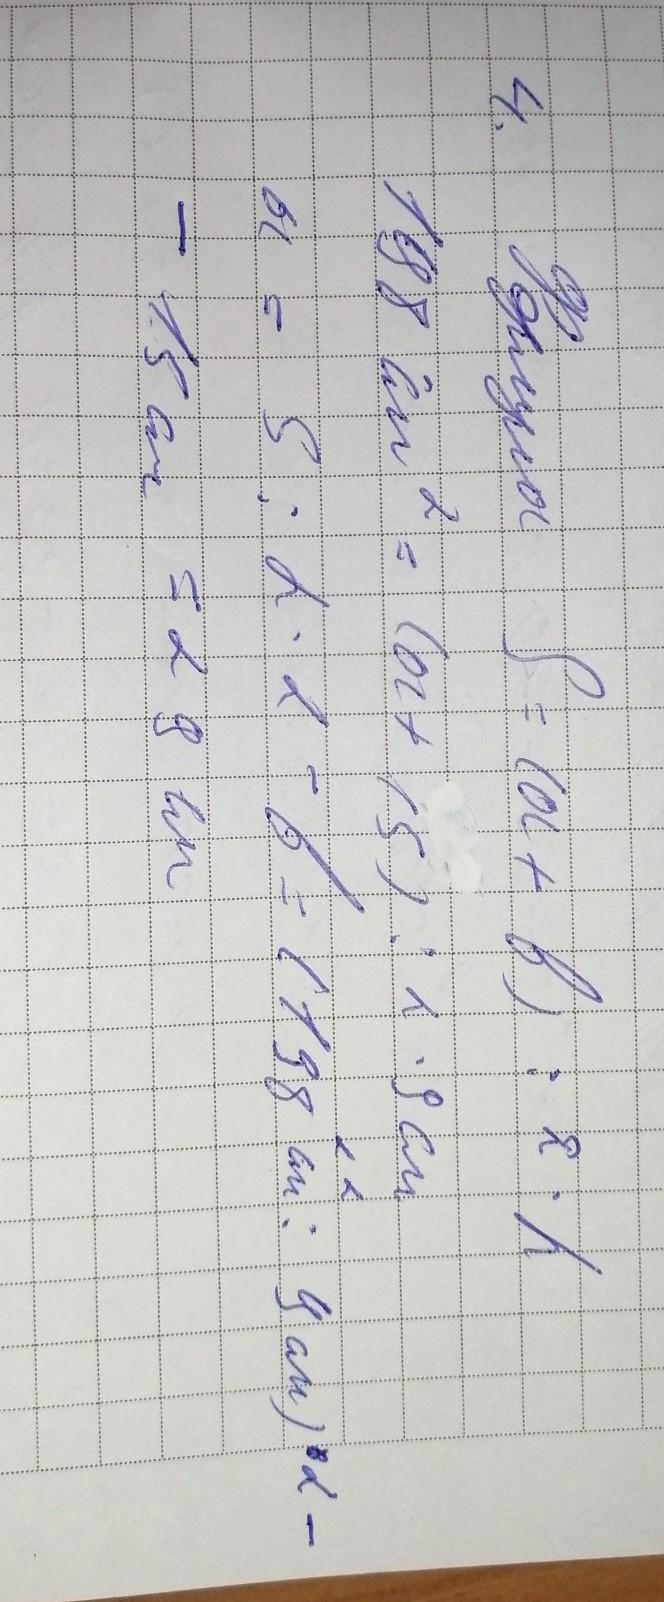 4. Формула S = (a + b) : 2 · h
198 см² = (a + 15) : 2 · 9 см
a = S : 2 · 2 - b = (198 см² : 9 см) · 2 -
- 15 см = 29 см